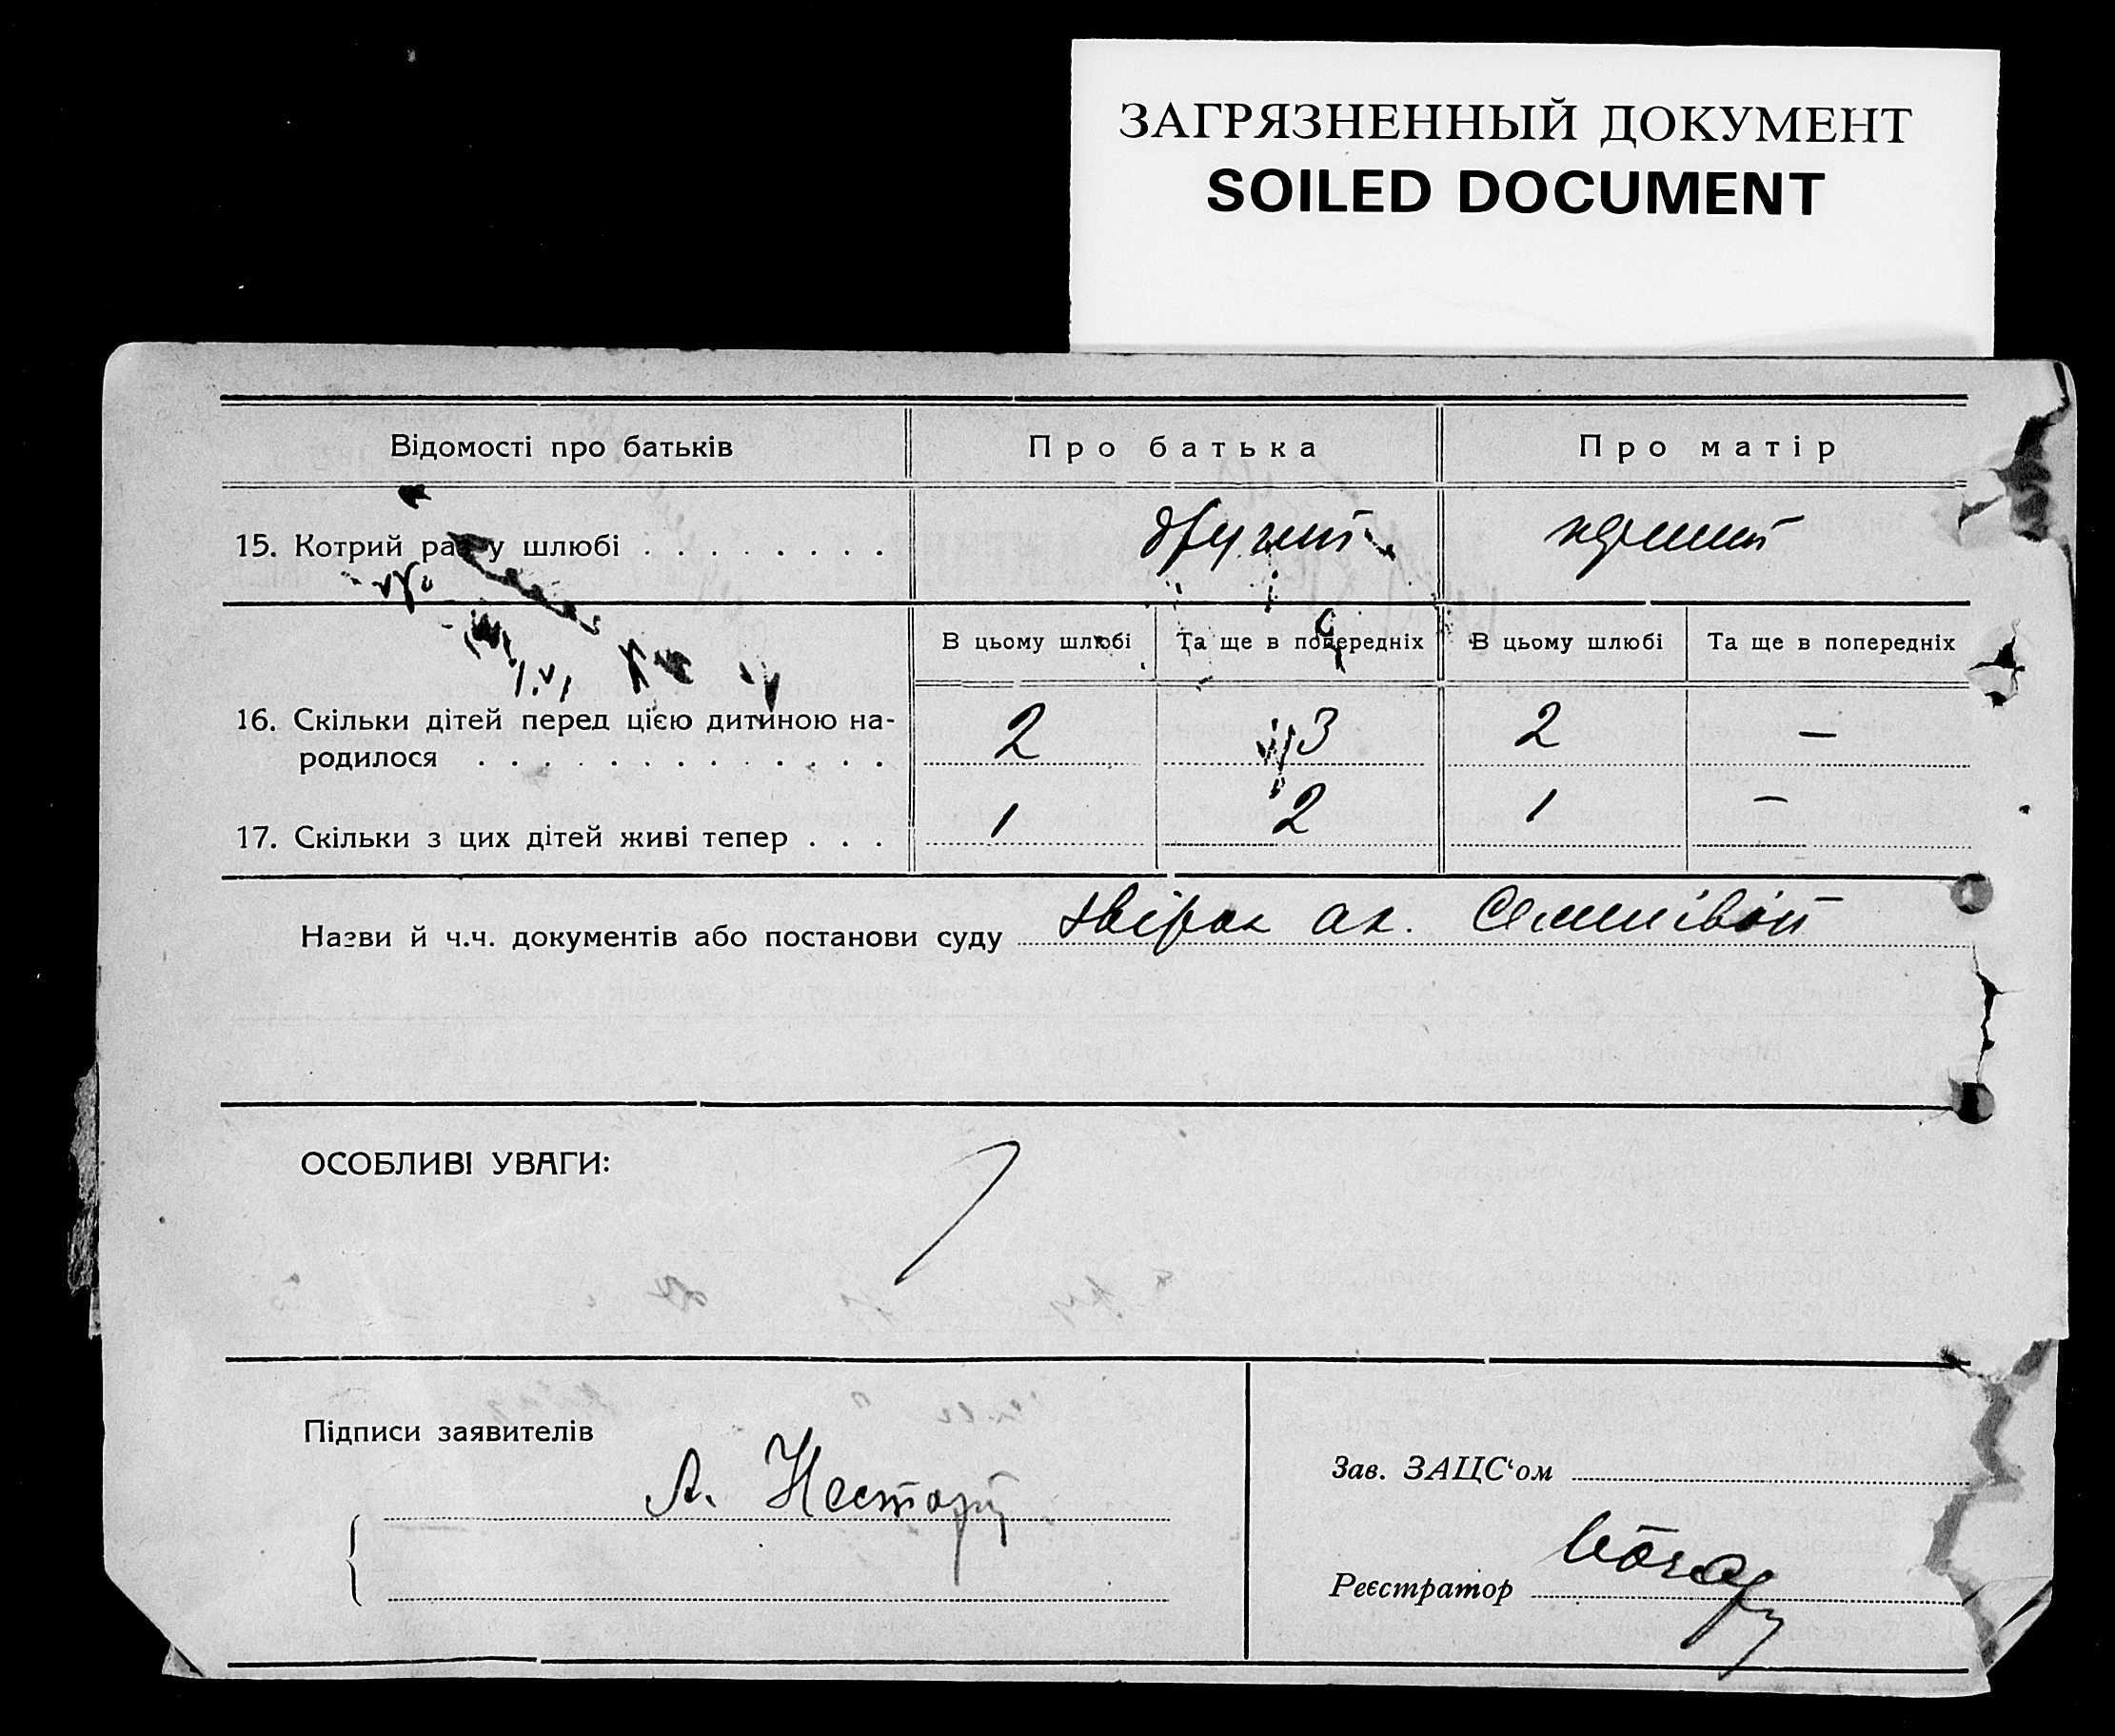 ЗАГРЯЗНЕННЫЙ ДОКУМЕНТ
SOILED DOCUMENT
Відомості про батьків
Про батька
Про матір
15. Котрий раз у шлюбі . . . . . . . .
другий
перший
В цьому шлюбі
Та ще в попередніх
В цьому шлюбі
Та ще в попередніх
16. Скільки дітей перед цією дитиною на-
родилося . . . . . . . . . . . . .
2
3
2
—
17. Скільки з цих дітей живі тепер . . .
1
2
1
—
Назви й ч.ч. документів або постанови суду
ОСОБЛИВІ УВАГИ:
Підписи заявителів
А.
Зав. ЗАЦС‘ом
Реєстратор